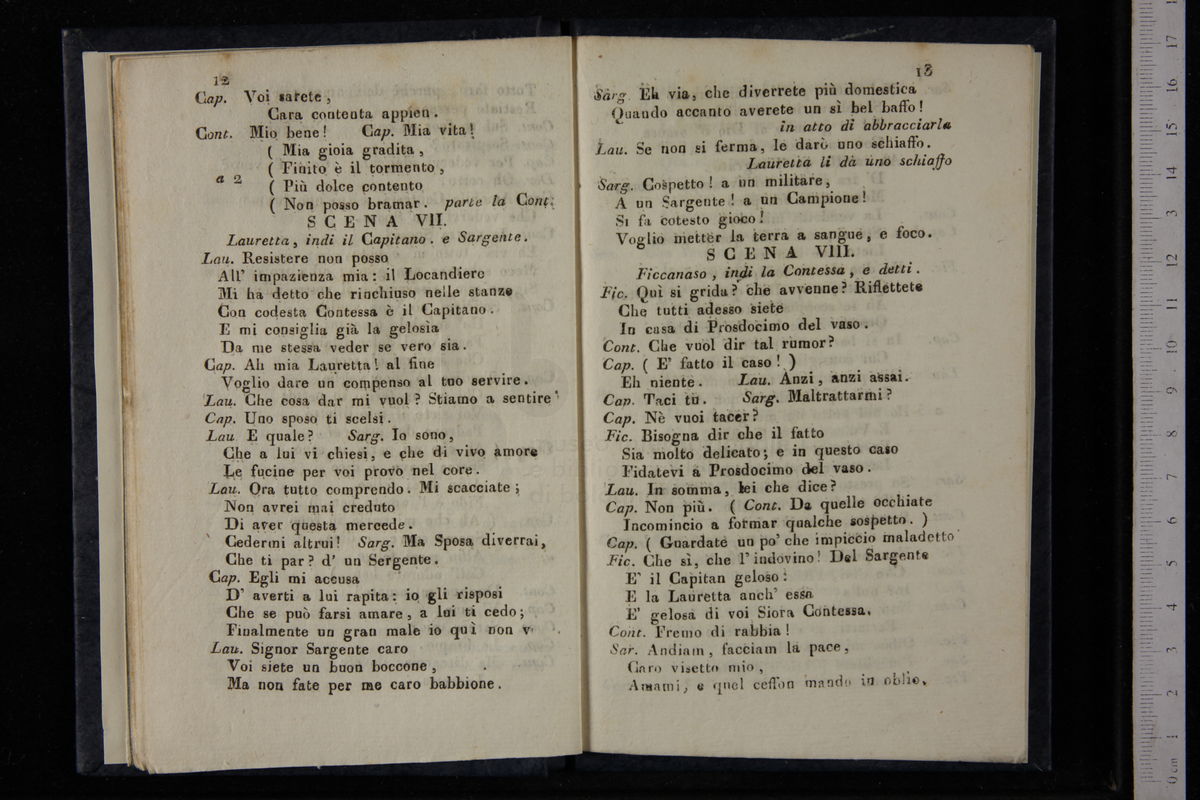 12
Cap. Voi sarete,
Cara contenta appien.
Cont. Mio bene! Cap. Mia vita!
( Mia gioia gradita,
( Finito è il tormento,
a 2
( Più dolce contento
( Non posso bramar. parte la Cont.
SCENA VII.
Lauretta, indi il Capitano. e Sargente.
Lau. Resistere non posso
All' impazienza mia: il Locandiere
Mi ha detto che rinchiuso nelle stanze
Con codesta Contessa è il Capitano.
E mi consiglia già la gelosìa
Da me stessa veder se vero sia.
Cap. Ah mia Lauretta! al fine
Voglio dare un compenso al tuo servire.
Lau. Che cosa dar mi vuol? Stiamo a sentire
Cap. Uno sposo ti scelsi.
Lau E quale? Sarg. Io sono,
Che a lui vi chiesi, e che di vivo amore
Le fucine per voi provo nel core.
Lau. Ora tutto comprendo. Mi scacciate;
Non avrei mai creduto
Di aver questa mercede.
Cedermi altrui! Sarg. Ma Sposa diverrai,
Che ti par? d' un Sergente.
Cap. Egli mi accusa
D' averti a lui rapita: io gli risposi
Che se può farsi amare, a lui ti cedo;
Finalmente un gran male io quì non v
Lau. Signor Sargente caro
Voi siete un buon boccone,
Ma non fate per me caro babbione.
13
Sarg. Eh via, che diverrete più domestica
Quando accanto averete un sì bel baffo!
in atto di abbracciarla
Lau. Se non si ferma, le darò uno schiaffo.
Lauretta li dà uno schiaffo
Sarg. Cospetto! a un militare,
A un Sargente! a un Campione!
Si fa cotesto gioco!
Voglio metter la terra a sangue, e foco.
SCENA VIII.
Ficcanaso, indi la Contessa, e detti.
Fic. Quì si grida? che avvenne? Riflettete
Che tutti adesso siete
In casa di Prosdocimo del vaso.
Cont. Che vuol dir tal rumor?
Cap. ( E' fatto il caso! )
Eh niente. Lau. Anzi, anzi assai.
Cap. Taci tu. Sarg. Maltrattarmi?
Cap. Nè vuoi tacer?
Fic. Bisogna dir che il fatto
Sia molto delicato; e in questo caso
Fidatevi a Prosdocimo del vaso.
Lau. In somma, lei che dice?
Cap. Non più. ( Cont. Da quelle occhiate
Incomincio a formar qualche sospetto. )
Cap. ( Guardate un po' che impiccio maladetto
Fic. Che sì, che l' indovino! Del Sargente
E' il Capitan geloso:
E la Lauretta anch' essa
E' gelosa di voi Siora Contessa.
Cont. Fremo di rabbia!
Sar. Andiam, facciam la pace,
Caro visetto mio,
Amami, e quel ceffon mando in oblio.